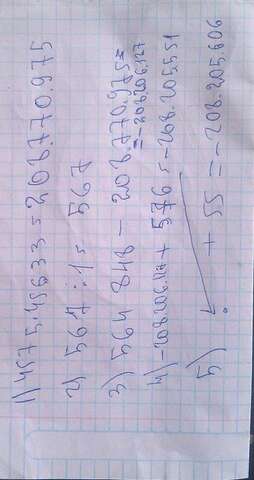 1) 4575.45633=208.770.975
2) 567 : 1 = 567
3) 564 848 - 208.770.975=
=-208.206.127
4) -208206.127 + 576 =-208.205.551
5) + 55 =-208.205.606